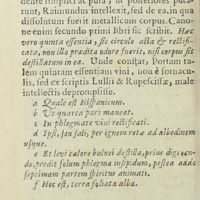 dente simplici ac pura, ut posteriores puta-
runt, Raimundus intellexit, sed de ea, in qua
dissolutum fuerit metallicum corpus. Cano-
ne enim secundo primi libri sic scribit. Hæc
vero quinta essentia, sit circulo acta & rectifi-
cata, non illo prædita odore fuerit, nisi corpus sit
destillatum in ea. Unde constat, Portam ta-
lem quintam essentiam vini, non è fornacu-
lis, sed ex scriptis Lullij & Rupescissæ, male
intellectis deprompsisse.
a Quale est Hispanicum.
b Ut quarta pars maneat.
c In phlegmate vini rectificati.
d Ipsi, seu sali, per ignem rota ad albedinem
usque.
e Et levi calore balnei destilla, prius digeren-
do, prodit solum phlegma insipidum, postea adde
septimam partem spiritus animati.
f Hoc est, terra foliata alba.